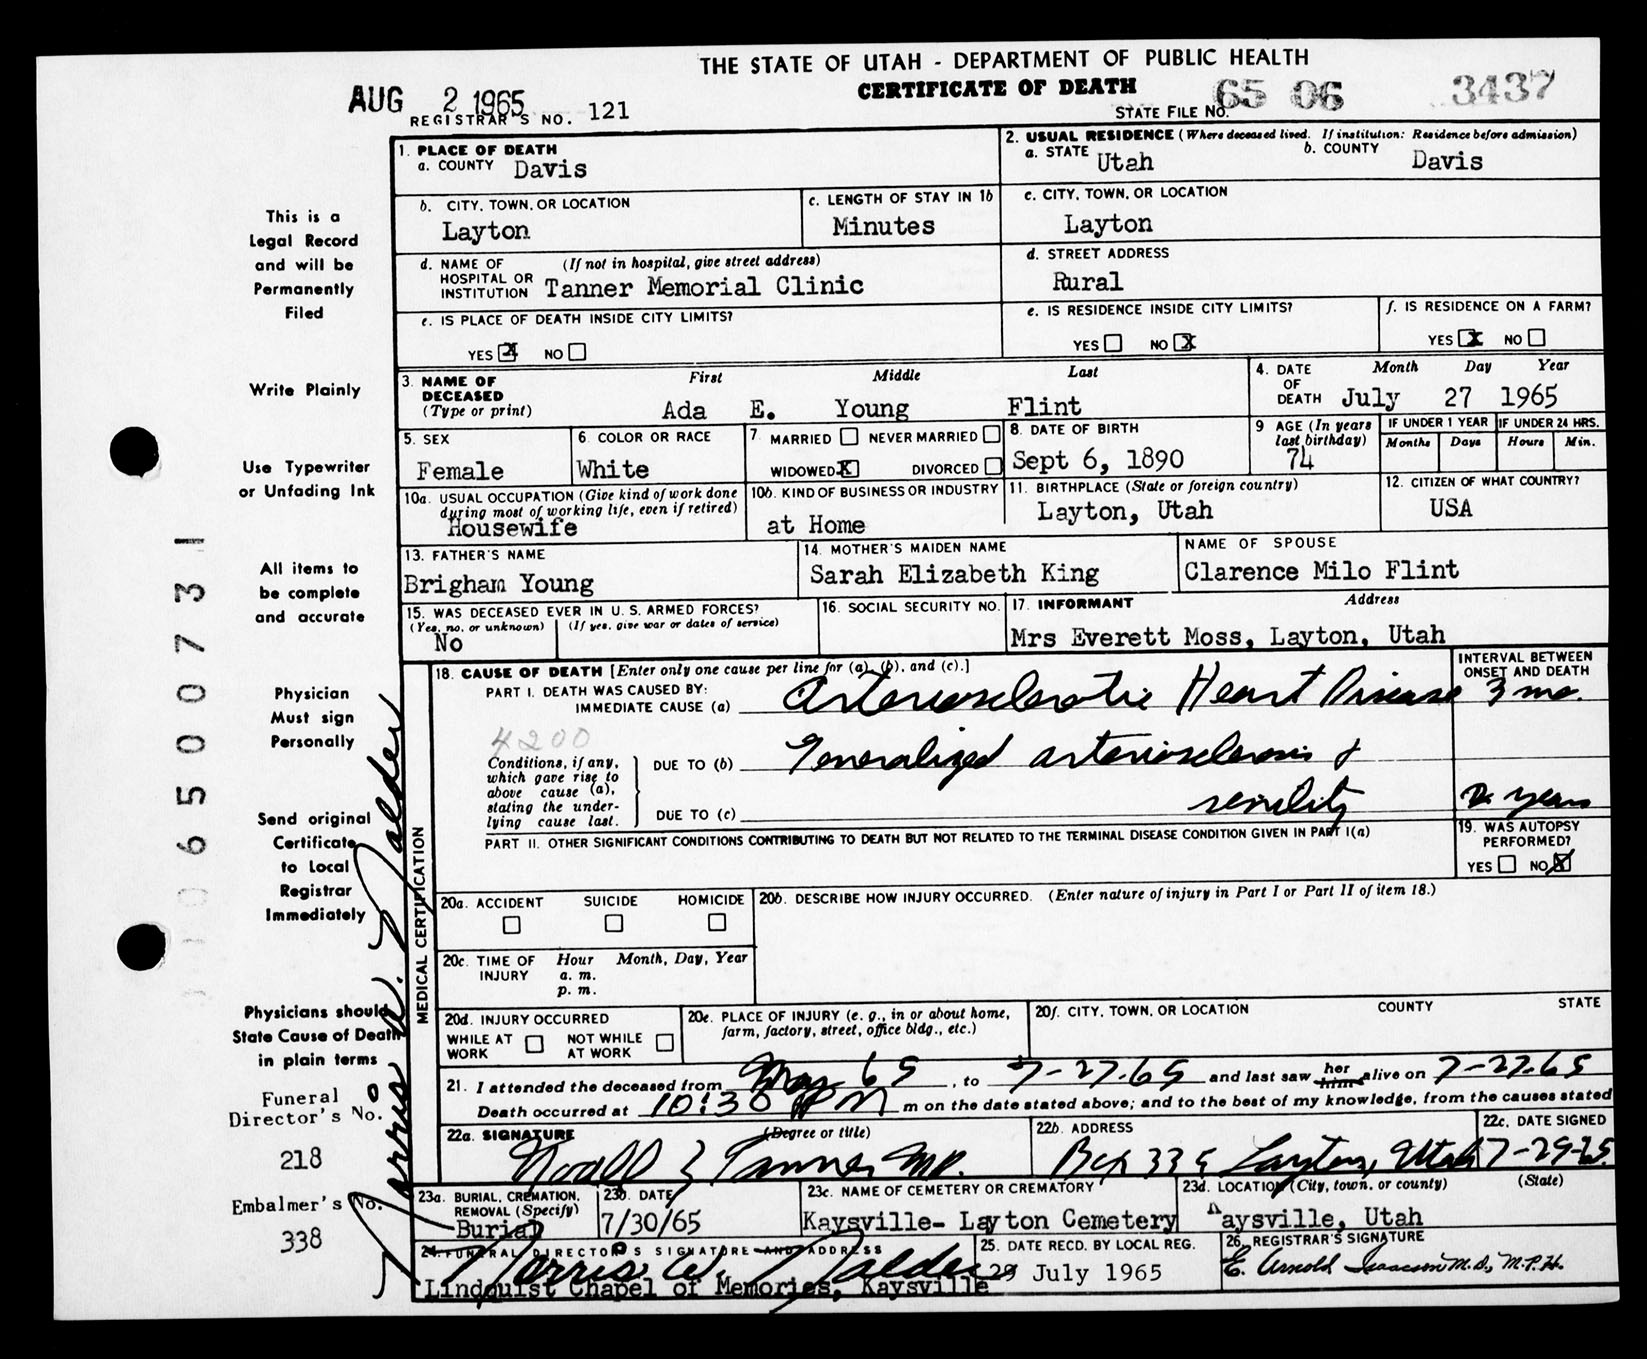 THE STATE OF UTAH - DEPARTMENT OF PUBLIC HEALTH
CERTIFICATE OF DEATH
AUG 2 1965
REGISTRAR'S NO. 121
STATE FILE NO. 65 06 3437
1. PLACE OF DEATH
a. COUNTY Davis
2. USUAL RESIDENCE (Where deceased lived. If institution: Residence before admission)
a. STATE Utah b. COUNTY Davis
b. CITY, TOWN, OR LOCATION Layton
c. LENGTH OF STAY IN 1b Minutes
c. CITY, TOWN, OR LOCATION Layton
d. NAME OF HOSPITAL OR INSTITUTION (If not in hospital, give street address) Tanner Memorial Clinic
d. STREET ADDRESS Rural
e. IS PLACE OF DEATH INSIDE CITY LIMITS?
YES X NO
e. IS RESIDENCE INSIDE CITY LIMITS?
YES NO X
f. IS RESIDENCE ON A FARM?
YES X NO
3. NAME OF DECEASED (Type or print)
First Middle Last
Ada E. Young Flint
4. DATE OF DEATH Month Day Year
July 27 1965
5. SEX Female
6. COLOR OR RACE White
7. MARRIED NEVER MARRIED
WIDOWED X DIVORCED
8. DATE OF BIRTH Sept 6, 1890
9 AGE (In years last birthday) 74
IF UNDER 1 YEAR Months Days
IF UNDER 24 HRS. Hours Min.
10a. USUAL OCCUPATION (Give kind of work done during most of working life, even if retired) Housewife
10b. KIND OF BUSINESS OR INDUSTRY at Home
11. BIRTHPLACE (State or foreign country) Layton, Utah
12. CITIZEN OF WHAT COUNTRY? USA
13. FATHER'S NAME Brigham Young
14. MOTHER'S MAIDEN NAME Sarah Elizabeth King
NAME OF SPOUSE Clarence Milo Flint
15. WAS DECEASED EVER IN U. S. ARMED FORCES?
(Yes, no, or unknown) (If yes, give war or dates of service)
No
16. SOCIAL SECURITY NO.
17. INFORMANT Address
Mrs Everett Moss, Layton, Utah
18. CAUSE OF DEATH [Enter only one cause per line for (a), (b), and (c).]
INTERVAL BETWEEN ONSET AND DEATH
PART I. DEATH WAS CAUSED BY:
IMMEDIATE CAUSE (a) Arteriosclerotic Heart Disease 3 mo.
4200
Conditions, if any, which gave rise to above cause (a), stating the underlying cause last.
DUE TO (b) Generalized arteriosclerosis &
DUE TO (c) senility years
PART II. OTHER SIGNIFICANT CONDITIONS CONTRIBUTING TO DEATH BUT NOT RELATED TO THE TERMINAL DISEASE CONDITION GIVEN IN PART I(a)
19. WAS AUTOPSY PERFORMED?
YES NO X
20a. ACCIDENT SUICIDE HOMICIDE
20b. DESCRIBE HOW INJURY OCCURRED. (Enter nature of injury in Part I or Part II of item 18.)
20c. TIME OF INJURY Hour Month, Day, Year
a. m.
p. m.
20d. INJURY OCCURRED
WHILE AT WORK NOT WHILE AT WORK
20e. PLACE OF INJURY (e. g., in or about home, farm, factory, street, office bldg., etc.)
20f. CITY, TOWN, OR LOCATION COUNTY STATE
21. I attended the deceased from May 65, to 7-27-65 and last saw her him alive on 7-27-65
Death occurred at 10:30 PM m on the date stated above; and to the best of my knowledge, from the causes stated
22a. SIGNATURE (Degree or title)
Noall Z Tanner MD.
22b. ADDRESS
Box 335 Layton, Utah
22c. DATE SIGNED
7-29-65
23a. BURIAL, CREMATION, REMOVAL (Specify) Burial
23b. DATE 7/30/65
23c. NAME OF CEMETERY OR CREMATORY Kaysville- Layton Cemetery
23d. LOCATION (City, town, or county) (State)
Kaysville, Utah
24. FUNERAL DIRECTOR'S SIGNATURE AND ADDRESS
Norris W. Nalder
Lindquist Chapel of Memories, Kaysville
25. DATE RECD. BY LOCAL REG.
29 July 1965
26. REGISTRAR'S SIGNATURE
E. Arnold Isaacson M.D., M.P.H.
MEDICAL CERTIFICATION
This is a
Legal Record
and will be
Permanently
Filed
Write Plainly
Use Typewriter
or Unfading Ink
All items to
be complete
and accurate
Physician
Must sign
Personally
Send original
Certificate
to Local
Registrar
Immediately
Physicians should
State Cause of Death
in plain terms
Funeral
Director's No.
218
Embalmer's No.
338
Norris W. Nalder
0650073